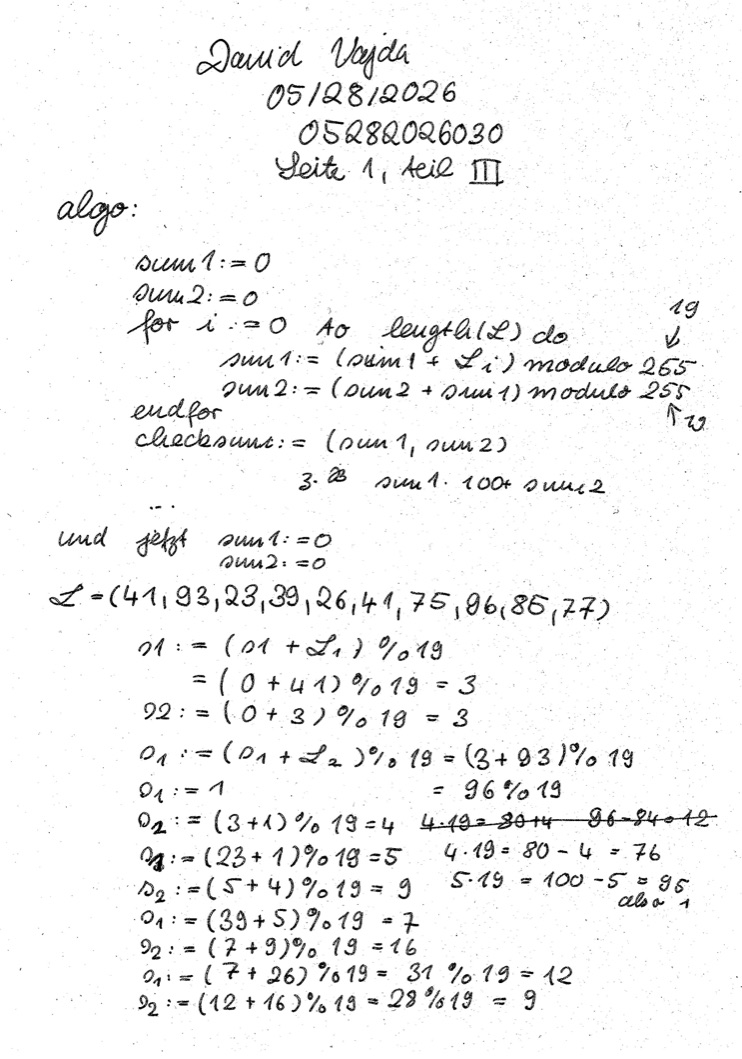 David Vajda
05/28/2026
05282026030
Seite 1, teil III
algo:
sum1:=0
sum2:=0
for i:=0 to length(L) do
19
↓
sum1:= (sum1 + Li) modulo 265
sum2:= (sum2 + sum1) modulo 255
↑ 19
endfor
checksum:= (sum1, sum2)
3. sum1. 100+ sum2
...
und jetzt sum1:=0
sum2:=0
L=(41,93,23,39,26,41,75,96,85,77)
s1 := (s1 + L1) %19
= (0+41)%19 = 3
s2 := (0+3)%19 = 3
s1 := (s1 + L2)%19 = (3+93)%19
s1 := 1 = 96%19
s2 := (3+1)%19=4 4.19=80+4 96-84=12
s1 := (23+1)%19=5 4.19=80-4=76
s2 := (5+4)%19=9 5.19=100-5=95
also 1
s1 := (39+5)%19=7
s2 := (7+9)%19=16
s1 := (7+26)%19= 31 %19=12
s2 := (12+16)%19=28%19 = 9